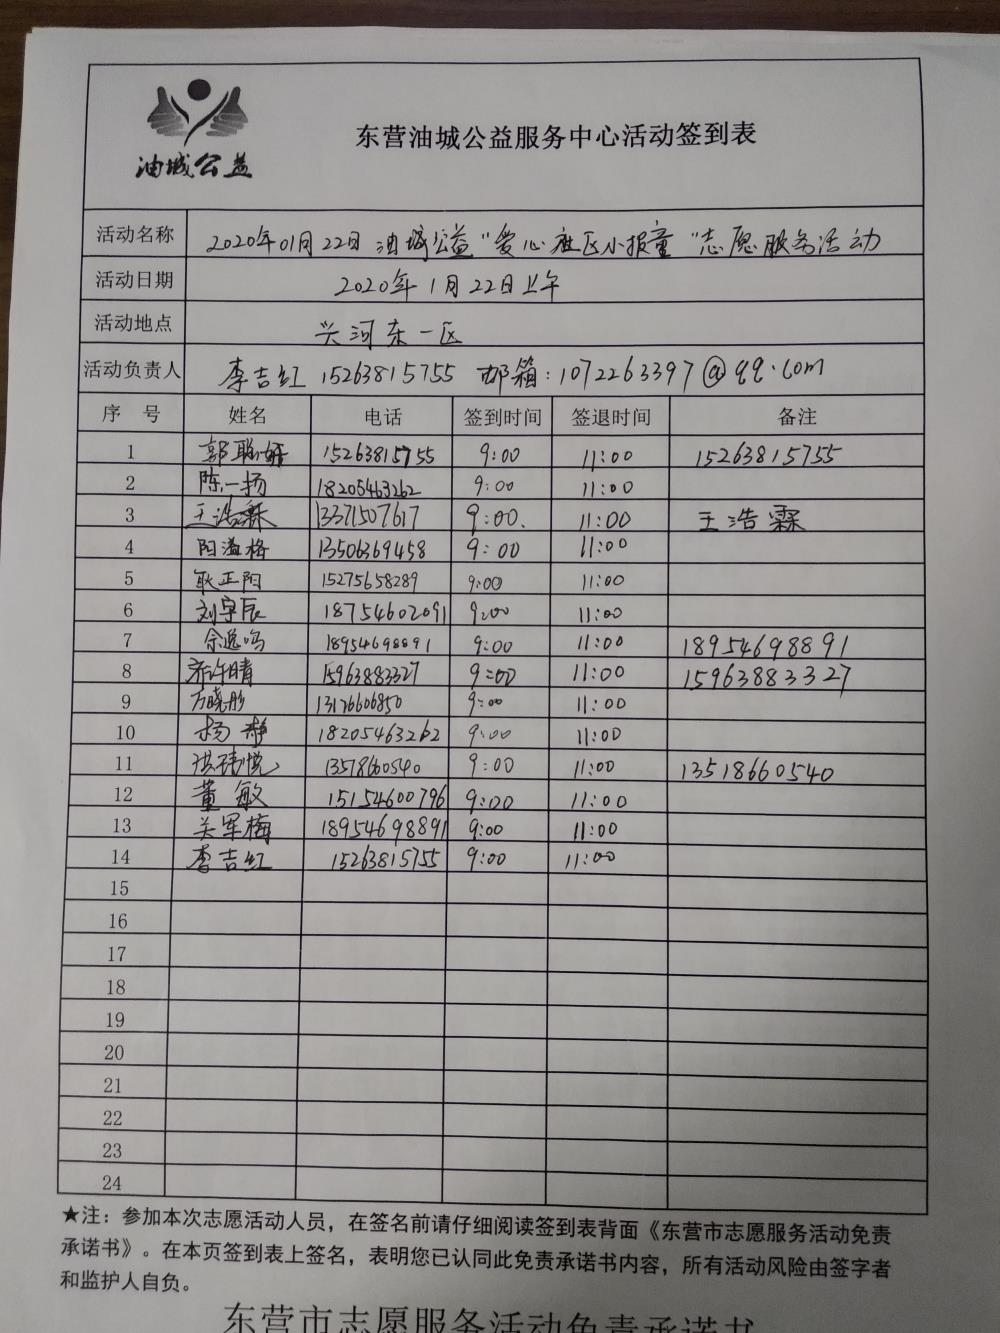 油城公益
东营油城公益服务中心活动签到表
活动名称 2020年01月22日 油城公益"爱心社区小报童"志愿服务活动
活动日期 2020年1月22日上午
活动地点 兴河东一区
活动负责人 李吉红 15263815755 邮箱:1072263397@qq.com
序 号 姓名 电话 签到时间 签退时间 备注
1 郭聪妍 15263815755 9:00 11:00 15263815755
2 陈一扬 18205463262 9:00 11:00
3 王浩霖 13371507617 9:00. 11:00 王浩霖
4 阳溢格 13506369458 9:00 11:00
5 耿正阳 15275658289 9:00 11:00
6 刘宇辰 18754602091 9:00 11:00
7 余逸鸣 18954698891 9:00 11:00 18954698891
8 乔许晴 15963883327 9:00 11:00 15963883327
9 万晓彤 13176606850 9:00 11:00
10 杨静 18205463262 9:00 11:00
11 13518660540 9:00 11:00 13518660540
12 董敏 15154600796 9:00 11:00
13 关军梅 18954698891 9:00 11:00
14 李吉红 15263815755 9:00 11:00
15
16
17
18
19
20
21
22
23
24
★注：参加本次志愿活动人员，在签名前请仔细阅读签到表背面《东营市志愿服务活动免责
承诺书》。在本页签到表上签名，表明您已认同此免责承诺书内容，所有活动风险由签字者
和监护人自负。
东营市志愿服务活动免责承诺书